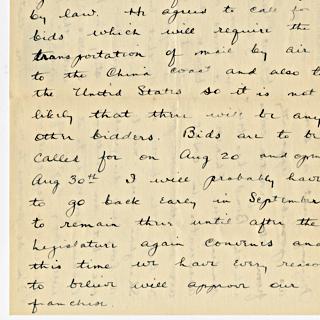 by law. He agrees to call for
bids which will require the
transportation of mail by air
to the China coast and also t
the United States so it is not
likely that there will be any
other bidders. Bids are to be
called for on Aug 20 and open
Aug 30th I will probably have
to go back early in September
to remain there until after the
Legislature again convenes and
this time we have every reaso
to believe will approve our
franchise.